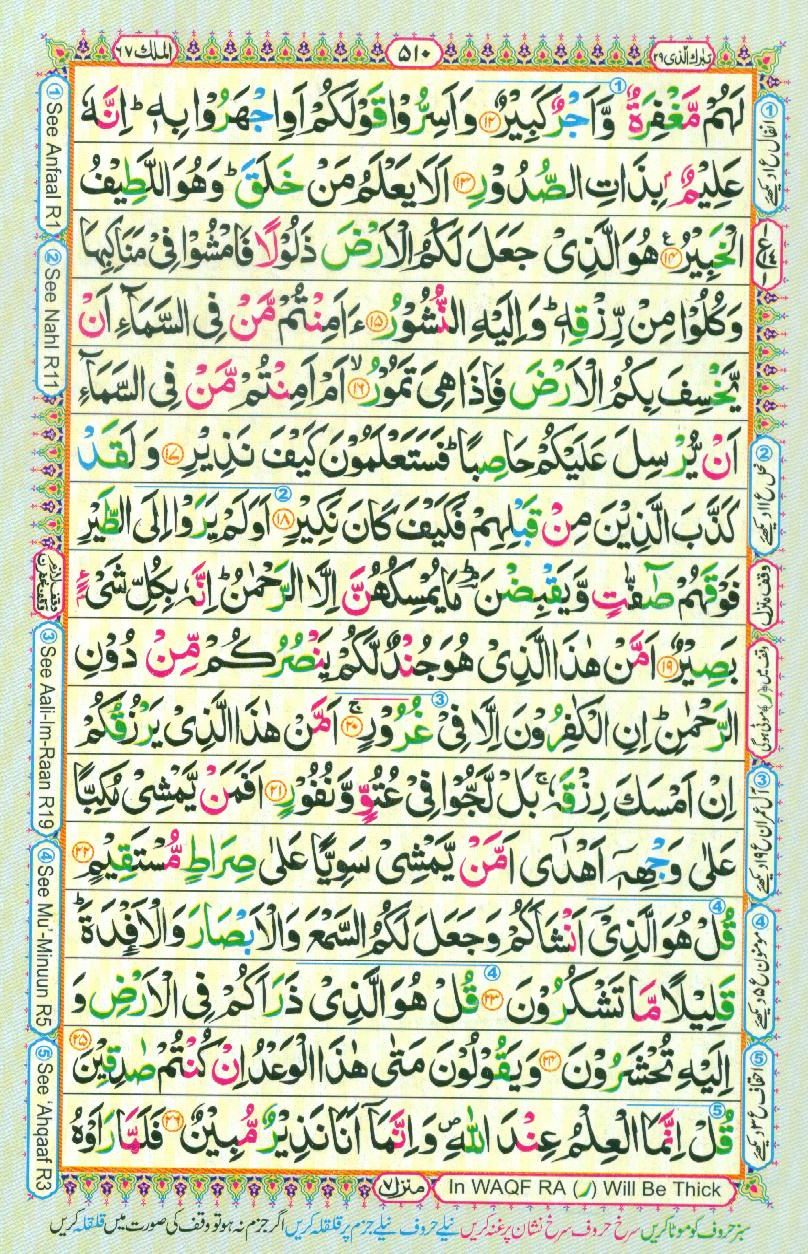 الملك ٦٧
٥١٠
تبارك الذی ٢٩
لَهُمْ مَّغْفِرَةٌ وَّاَجْرٌ كَبِيْرٌ ﴿١٢﴾ وَاَسِرُّوْا قَوْلَكُمْ اَوِ اجْهَرُوْا بِهٖ ؕ اِنَّهٗ
عَلِيْمٌۢ بِذَاتِ الصُّدُوْرِ ﴿١٣﴾ اَلَا يَعْلَمُ مَنْ خَلَقَ ؕ وَهُوَ اللَّطِيْفُ
الْخَبِيْرُ ﴿١٤﴾ هُوَ الَّذِىْ جَعَلَ لَكُمُ الْاَرْضَ ذَلُوْلًا فَامْشُوْا فِىْ مَنَاكِبِهَا
وَكُلُوْا مِنْ رِّزْقِهٖ ؕ وَاِلَيْهِ النُّشُوْرُ ﴿١٥﴾ ءَاَمِنْتُمْ مَّنْ فِى السَّمَآءِ اَنْ
يَّخْسِفَ بِكُمُ الْاَرْضَ فَاِذَا هِىَ تَمُوْرُ ۙ﴿١٦﴾ اَمْ اَمِنْتُمْ مَّنْ فِى السَّمَآءِ
اَنْ يُّرْسِلَ عَلَيْكُمْ حَاصِبًا ؕ فَسَتَعْلَمُوْنَ كَيْفَ نَذِيْرِ ﴿١٧﴾ وَلَقَدْ
كَذَّبَ الَّذِيْنَ مِنْ قَبْلِهِمْ فَكَيْفَ كَانَ نَكِيْرِ ﴿١٨﴾ اَوَلَمْ يَرَوْا اِلَى الطَّيْرِ
فَوْقَهُمْ صٰٓفّٰتٍ وَّيَقْبِضْنَ ؕۘ مَا يُمْسِكُهُنَّ اِلَّا الرَّحْمٰنُ ؕ اِنَّهٗ بِكُلِّ شَىْءٍۢ
بَصِيْرٌ ﴿١٩﴾ اَمَّنْ هٰذَا الَّذِىْ هُوَ جُنْدٌ لَّكُمْ يَنْصُرُكُمْ مِّنْ دُوْنِ
الرَّحْمٰنِ ؕ اِنِ الْكٰفِرُوْنَ اِلَّا فِىْ غُرُوْرٍ ۚ﴿٢٠﴾ اَمَّنْ هٰذَا الَّذِىْ يَرْزُقُكُمْ
اِنْ اَمْسَكَ رِزْقَهٗ ۚ بَلْ لَّجُّوْا فِىْ عُتُوٍّ وَّنُفُوْرٍ ﴿٢١﴾ اَفَمَنْ يَّمْشِىْ مُكِبًّا
عَلٰى وَجْهِهٖۤ اَهْدٰٓى اَمَّنْ يَّمْشِىْ سَوِيًّا عَلٰى صِرَاطٍ مُّسْتَقِيْمٍ ﴿٢٢﴾
قُلْ هُوَ الَّذِىْۤ اَنْشَاَكُمْ وَجَعَلَ لَكُمُ السَّمْعَ وَالْاَبْصَارَ وَالْاَفْـِٕدَةَ ؕ
قَلِيْلًا مَّا تَشْكُرُوْنَ ﴿٢٣﴾ قُلْ هُوَ الَّذِىْ ذَرَاَكُمْ فِى الْاَرْضِ وَ
اِلَيْهِ تُحْشَرُوْنَ ﴿٢٤﴾ وَيَقُوْلُوْنَ مَتٰى هٰذَا الْوَعْدُ اِنْ كُنْتُمْ صٰدِقِيْنَ ﴿٢٥﴾
قُلْ اِنَّمَا الْعِلْمُ عِنْدَ اللّٰهِ ۖ وَاِنَّمَاۤ اَنَا نَذِيْرٌ مُّبِيْنٌ ﴿٢٦﴾ فَلَمَّا رَاَوْهُ
① See Anfaal R1
② See Nahl R11
③ See Aali-Im-Raan R19
④ See Mu'-Minuun R5
⑤ See 'Ahqaaf R3
① انفال ع ١ دیکھئے
② نحل ع ١١ دیکھئے
وقف منزل
③ آل عمران ع ١٩ دیکھئے
④ مومنون ع ٥ دیکھئے
⑤ احقاف ع ٣ دیکھئے
منزل ٧
In WAQF RA (ر) Will Be Thick
سبز حروف کو موٹا کریں سرخ حروف سرخ نشان پر غنہ کریں نیلے حروف نیلے جزم پر قلقلہ کریں اگر جزم نہ ہو تو وقف کی صورت میں قلقلہ کریں